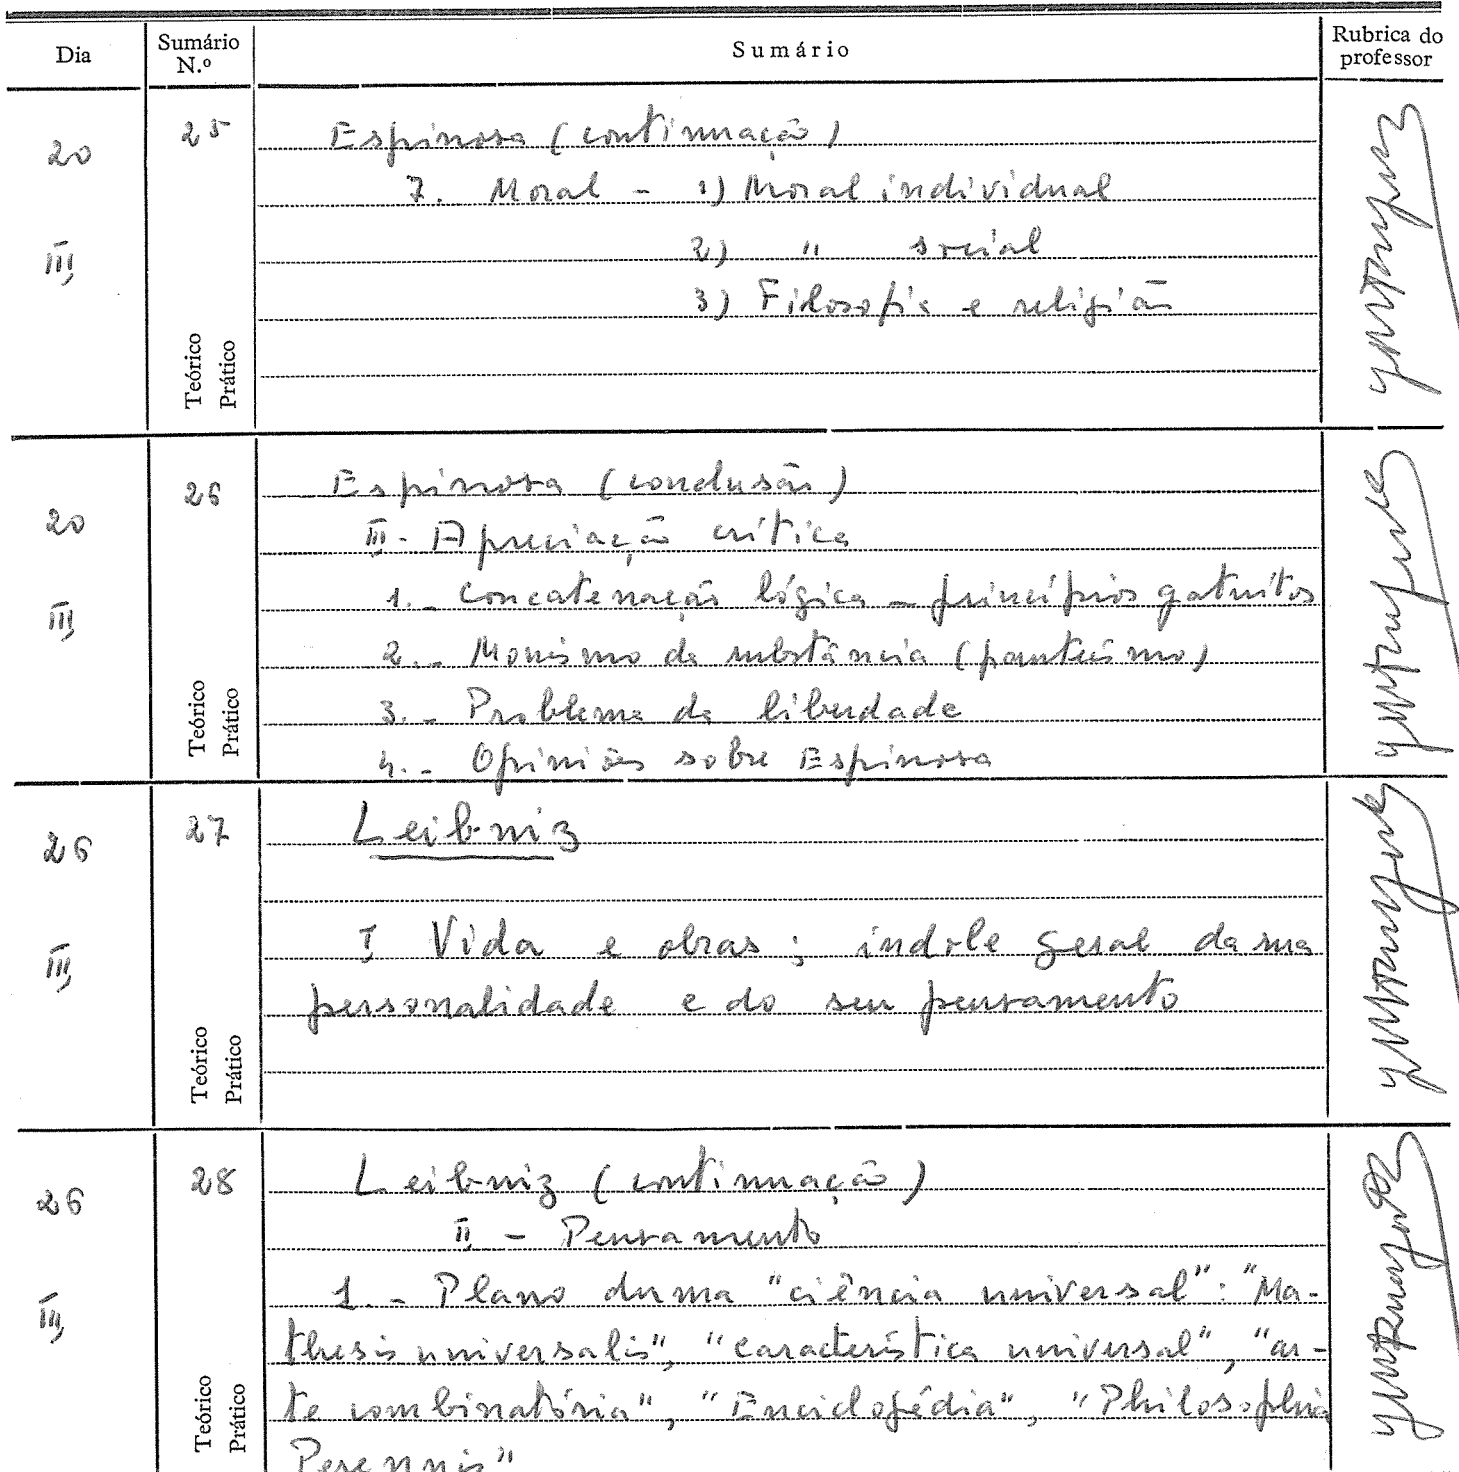 Dia
Sumário
N.º
Sumário
Rubrica do
professor
20
III
25
Teórico
Prático
Espinosa (continuação)
7. Moral - 1) Moral individual
2) " social
3) Filosofia e religião
20
III
26
Teórico
Prático
Espinosa (conclusão)
III - Apreciação crítica
1. - Concatenação lógica - princípios gatuitos
2. - Monismo da substância (panteísmo)
3. - Problema da liberdade
4. - Opiniões sobre Espinosa
26
III
27
Teórico
Prático
Leibniz
I Vida e obras; índole geral da sua
personalidade e do seu pensamento
26
III
28
Teórico
Prático
Leibniz (continuação)
II - Pensamento
1. - Plano duma "ciência universal": "Ma-
thesis universalis", "Característica universal", "ar-
te combinatória", "Enciclopédia", "Philosophia
Perennis"